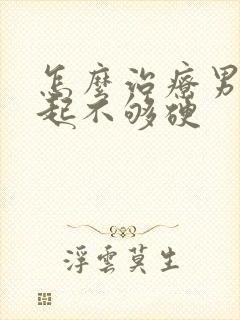 怎麼治療男
起不够硬
浮雲莫生